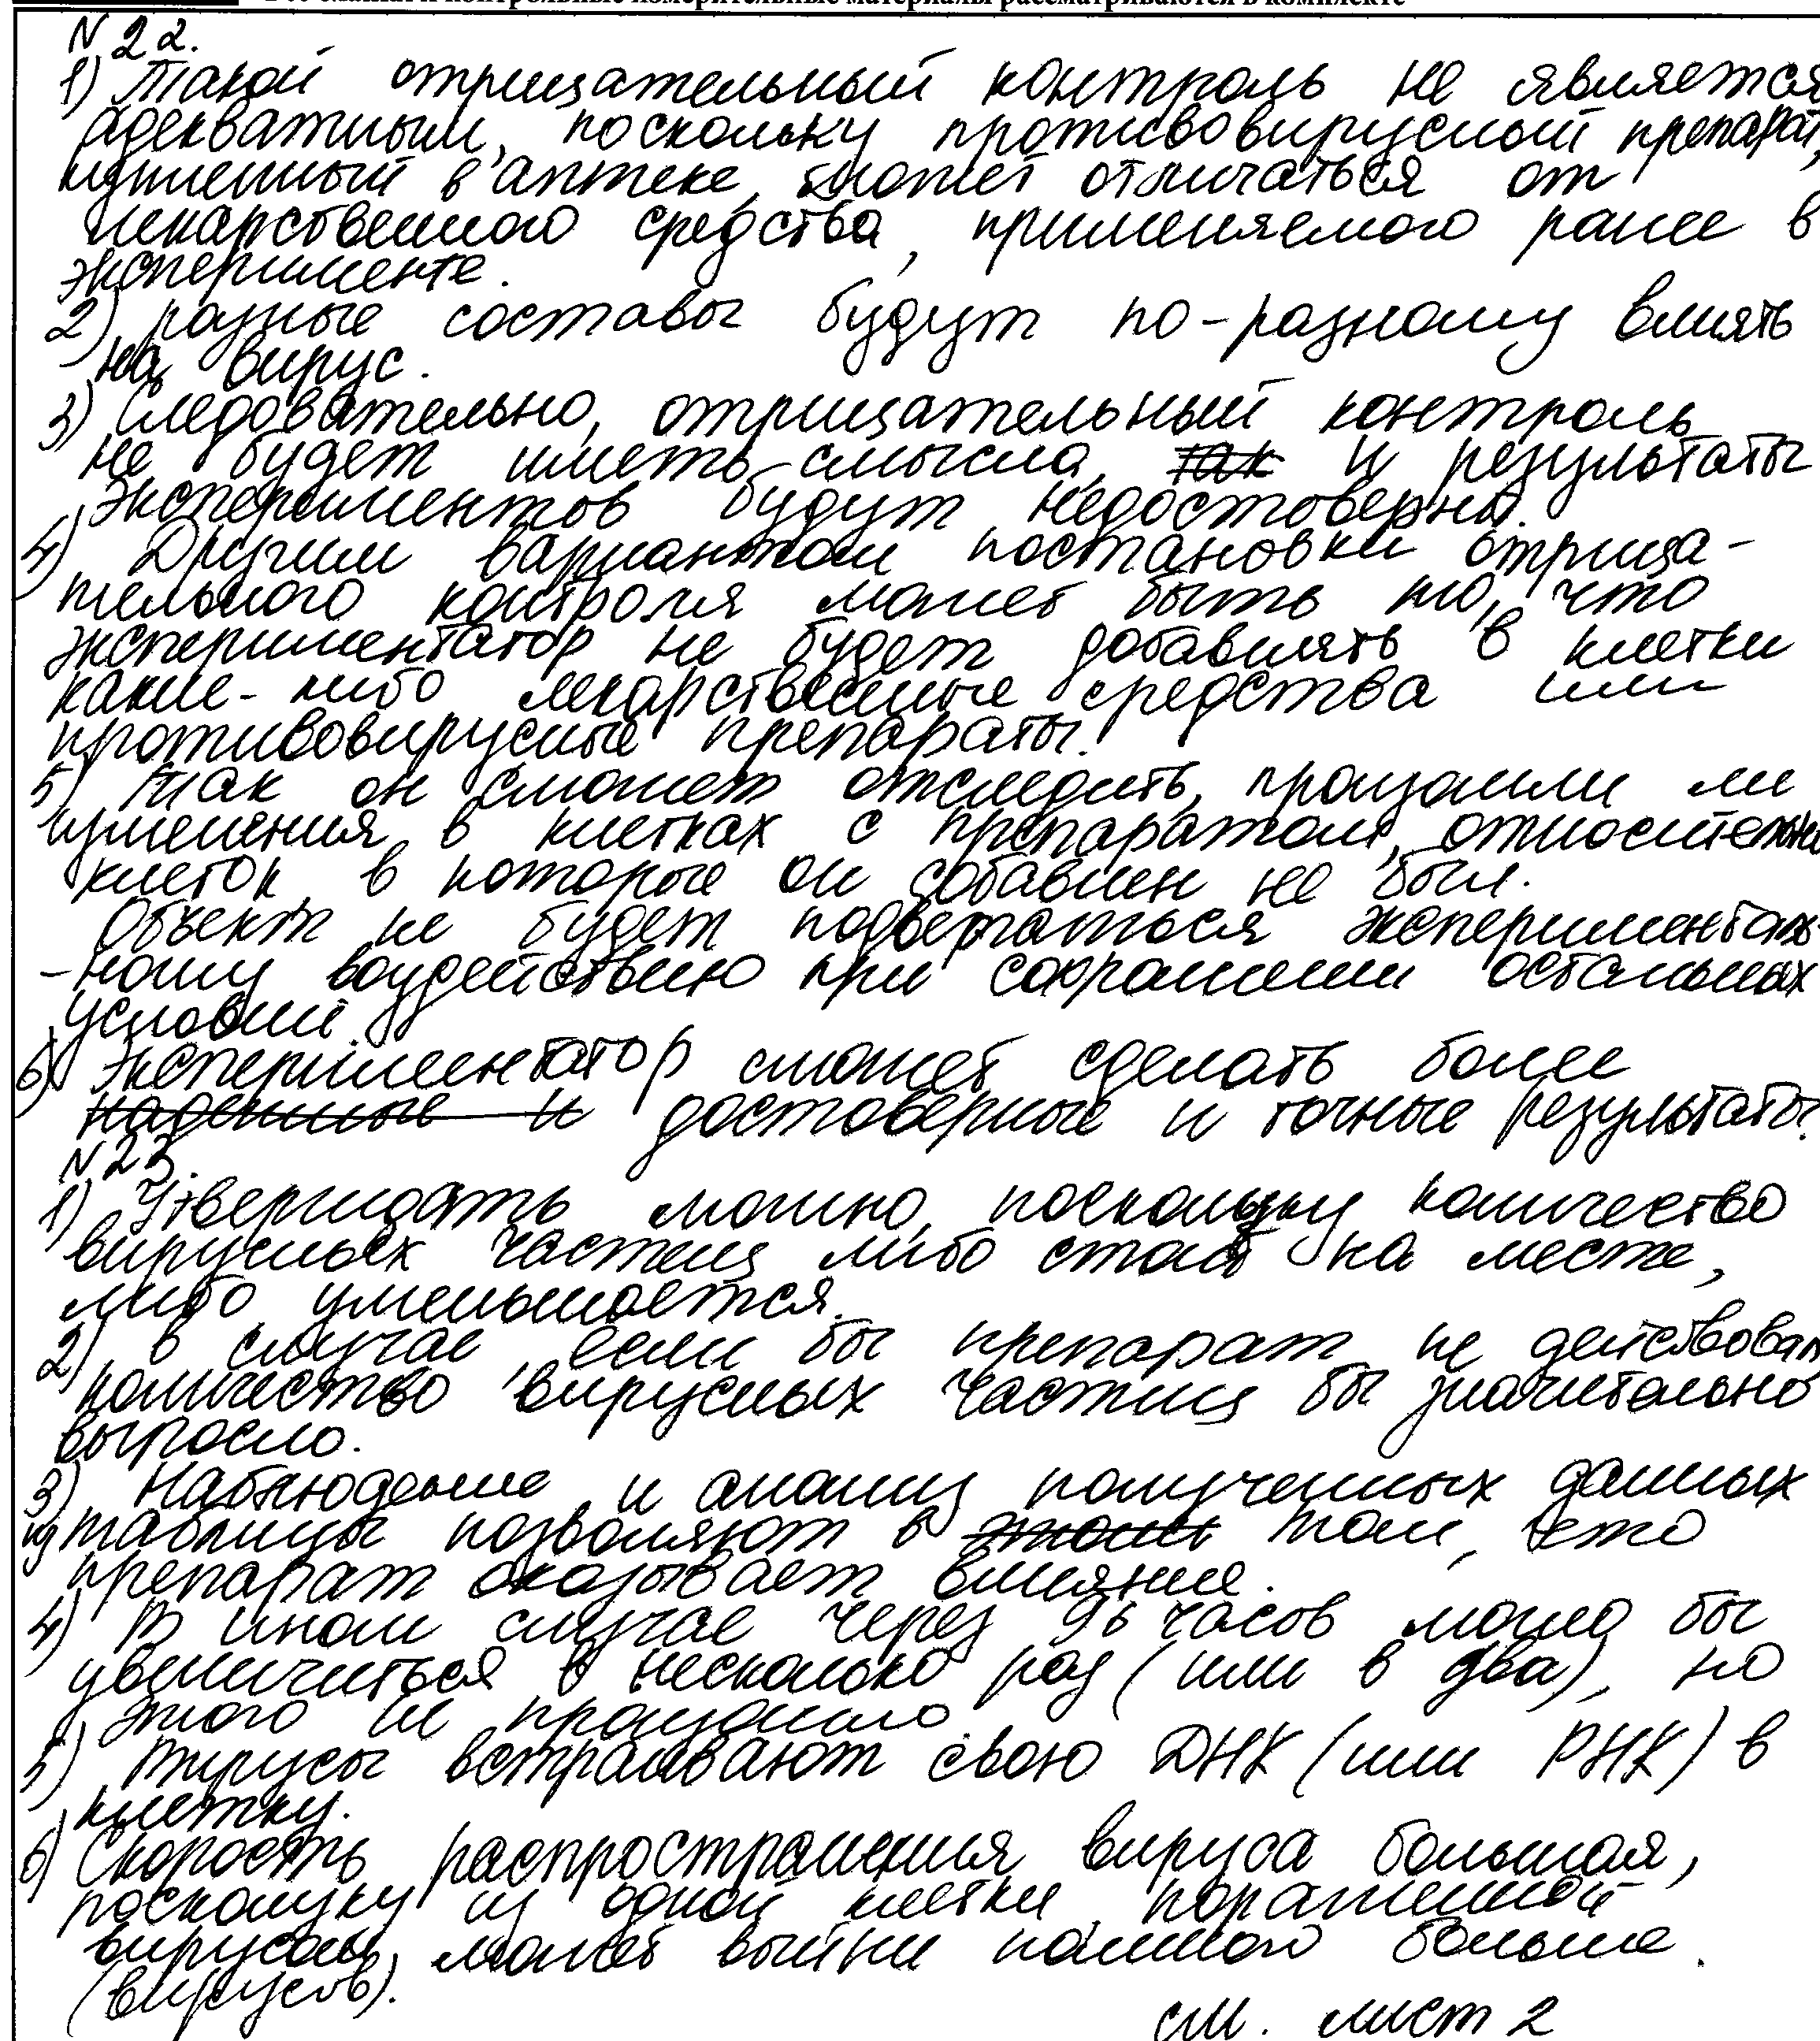 Все бланки и контрольные измерительные материалы рассматриваются в комплекте
N 22.
1) Такой отрицательный контроль не является
адекватным, поскольку противовирусный препарат,
купленный в аптеке, может отличаться от
лекарственного средства, применяемого ранее в
эксперименте.
2) разные составы будут по-разному влиять
на вирус.
3) Следовательно, отрицательный контроль
не будет иметь смысла, так и результаты
экспериментов будут недостоверны.
4) Другим вариантом постановки отрица-
тельного контроля может быть то, что
экспериментатор не будет добавлять в клетки
какие-либо лекарственные средства или
противовирусные препараты.
5) Так он сможет отследить, произошли ли
изменения в клетках с препаратом, относительно
клеток в которые он добавлен не был.
Объект не будет подвергаться эксперименталь-
-ному воздействию при сохранении остальных
условий.
6) Экспериментатор сможет сделать более
надежные и достоверные и точные результаты.
N 23.
1) Утверждать можно, поскольку количество
вирусных частиц либо стоит на месте,
либо уменьшается.
2) в случае, если бы препарат не действовал
количество вирусных частиц бы значительно
выросло.
3) Наблюдение и анализ полученных данных
из таблицы позволяют в том, что
препарат оказывает влияние.
4) В ином случае через 96 часов могло бы
увеличиться в несколько раз (или в два), но
этого не произошло.
5) Вирусы встраивают свою ДНК (или РНК) в
клетку.
6) Скорость распространения вируса большая,
поскольку из одной клетки, пораженной
вирусом, может выйти намного больше.
(вирусов).
см. лист 2